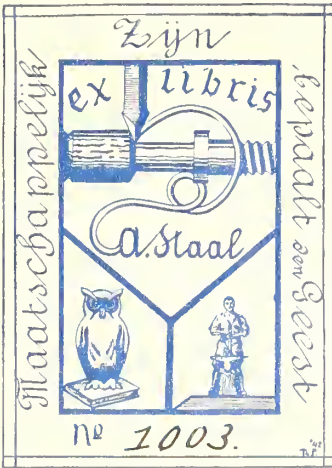 Maatschappelijk
Zijn
bepaalt den Geest
ex libris
A. Staal
No 1003.